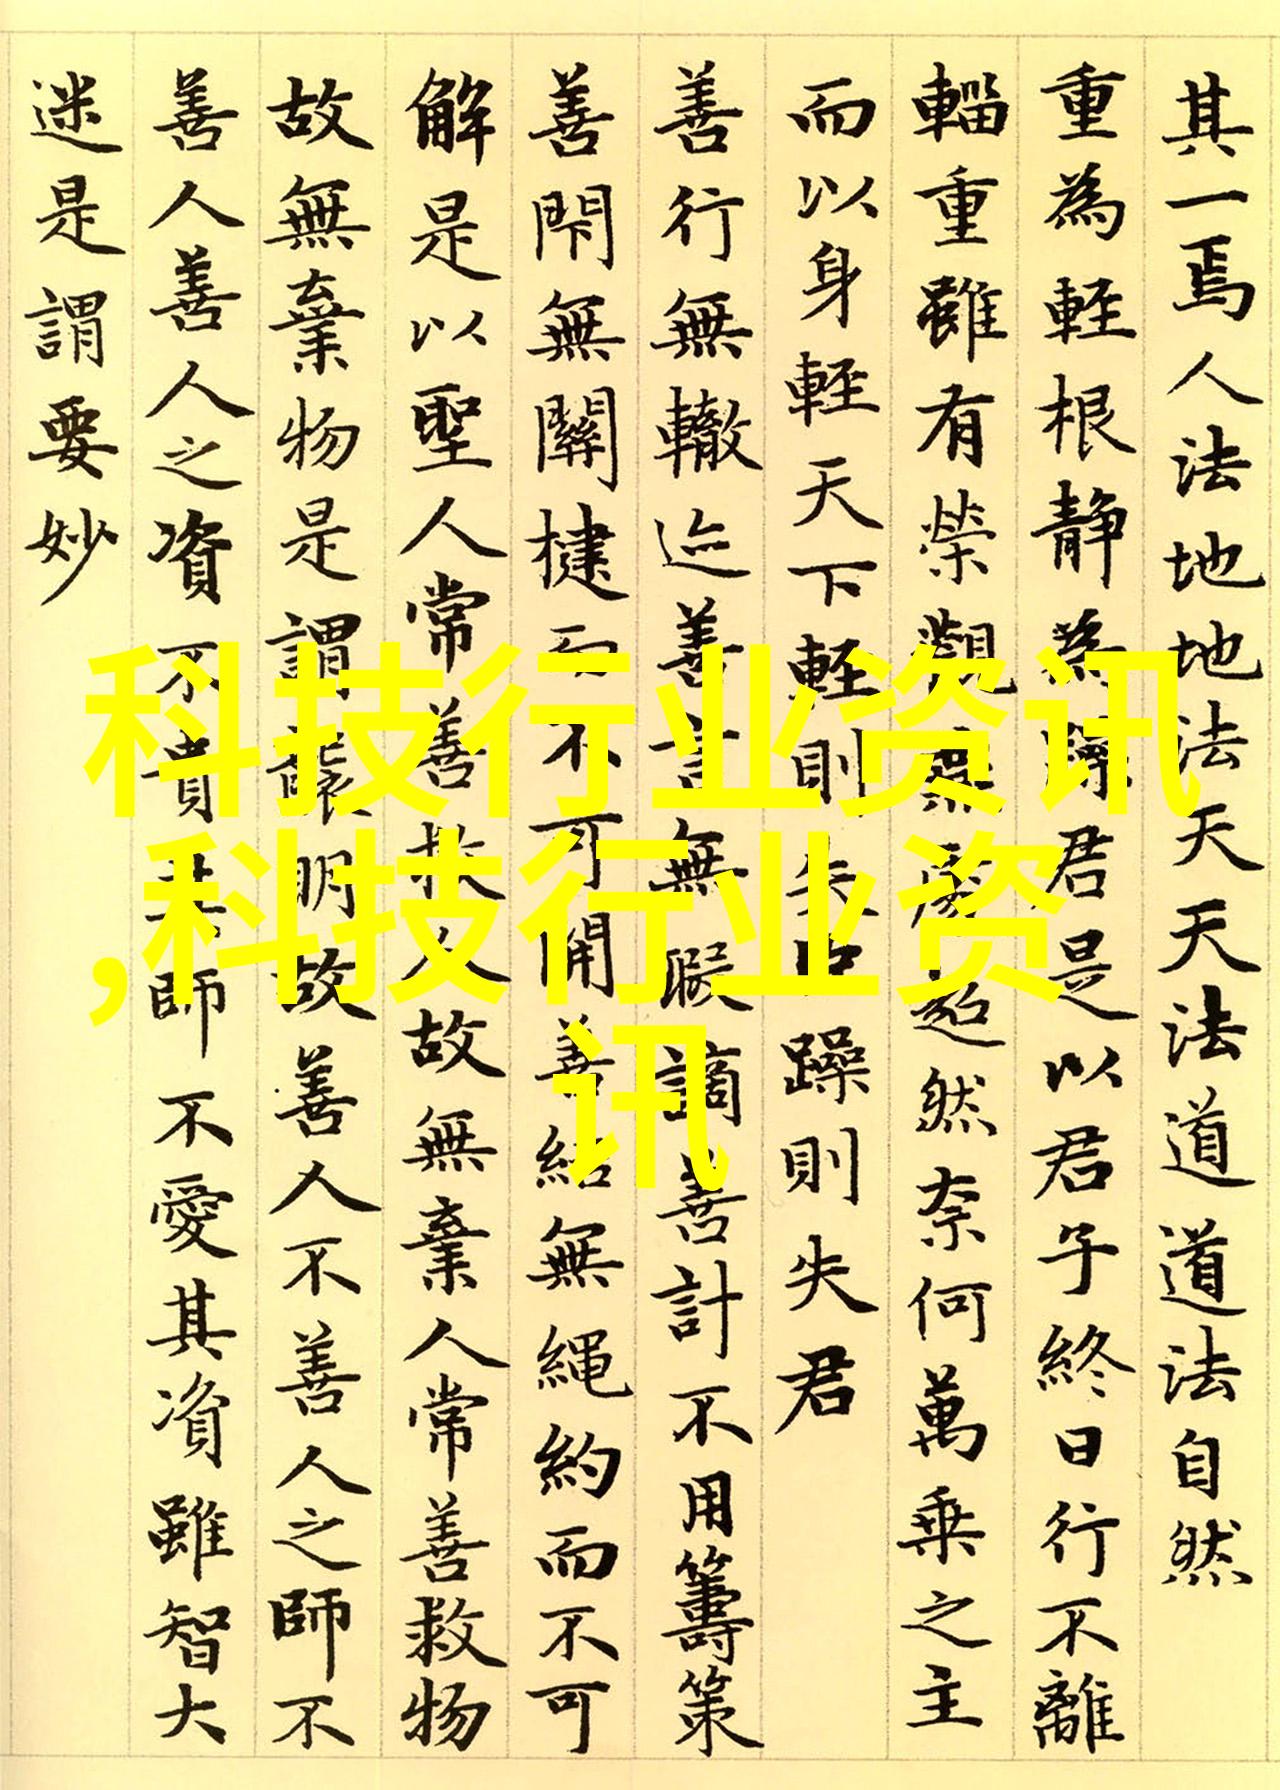 其一焉人法地地法天天法道道法自然
重為輕根靜為躁君是以君子終日行不離
輜重雖有榮觀燕處超然奈何萬乘之主
而以身輕天下輕則失臣躁則失君
善行無轍迹善言無瑕謫善計不用籌策
善閇無關楗而不可開善結無繩約而不可
解是以聖人常善救人故無棄人常善救物
故無棄物是謂襲明故善人不善人之師不
善人善人之資不貴其師不愛其資雖智大
迷是謂要妙
科技行业资讯
,科技行业资
讯